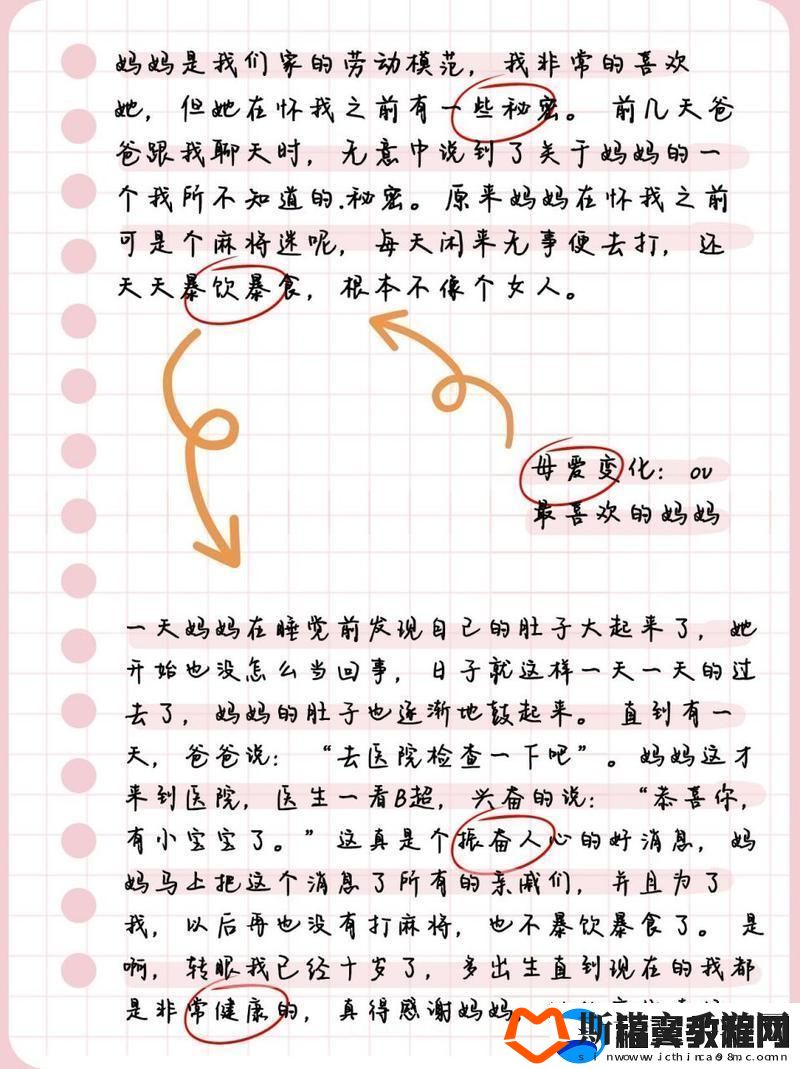 妈妈是我们家的劳动模范，我非常的喜欢
她，但她在怀我之前有一些秘密。前几天爸
爸跟我聊天时，无意中说到了关于妈妈的一
个我所不知道的.秘密。原来妈妈在怀我之前
可是个麻将迷呢，每天闲来无事便去打，还
天天暴饮暴食，根本不像个女人。
母爱变化：ov
最喜欢的妈妈
一天妈妈在睡觉前发现自己的肚子大起来了，她
开始也没怎么当回事，日子就这样一天一天的过
去了，妈妈的肚子也逐渐地鼓起来。直到有一
天，爸爸说：“去医院检查一下吧”。妈妈这才
来到医院，医生一看B超，兴奋的说：“恭喜你，
有小宝宝了。”这真是个振奋人心的好消息，妈
妈马上把这个消息了所有的亲戚们，并且为了
我，以后再也没有打麻将，也不暴饮暴食了。是
啊，转眼我已经十岁了，多出生直到现在的我都
是非常健康的，真得感谢妈妈，
教程网